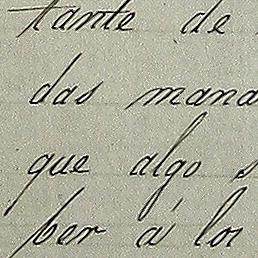 tante de
das mana
que algo s
ber á los